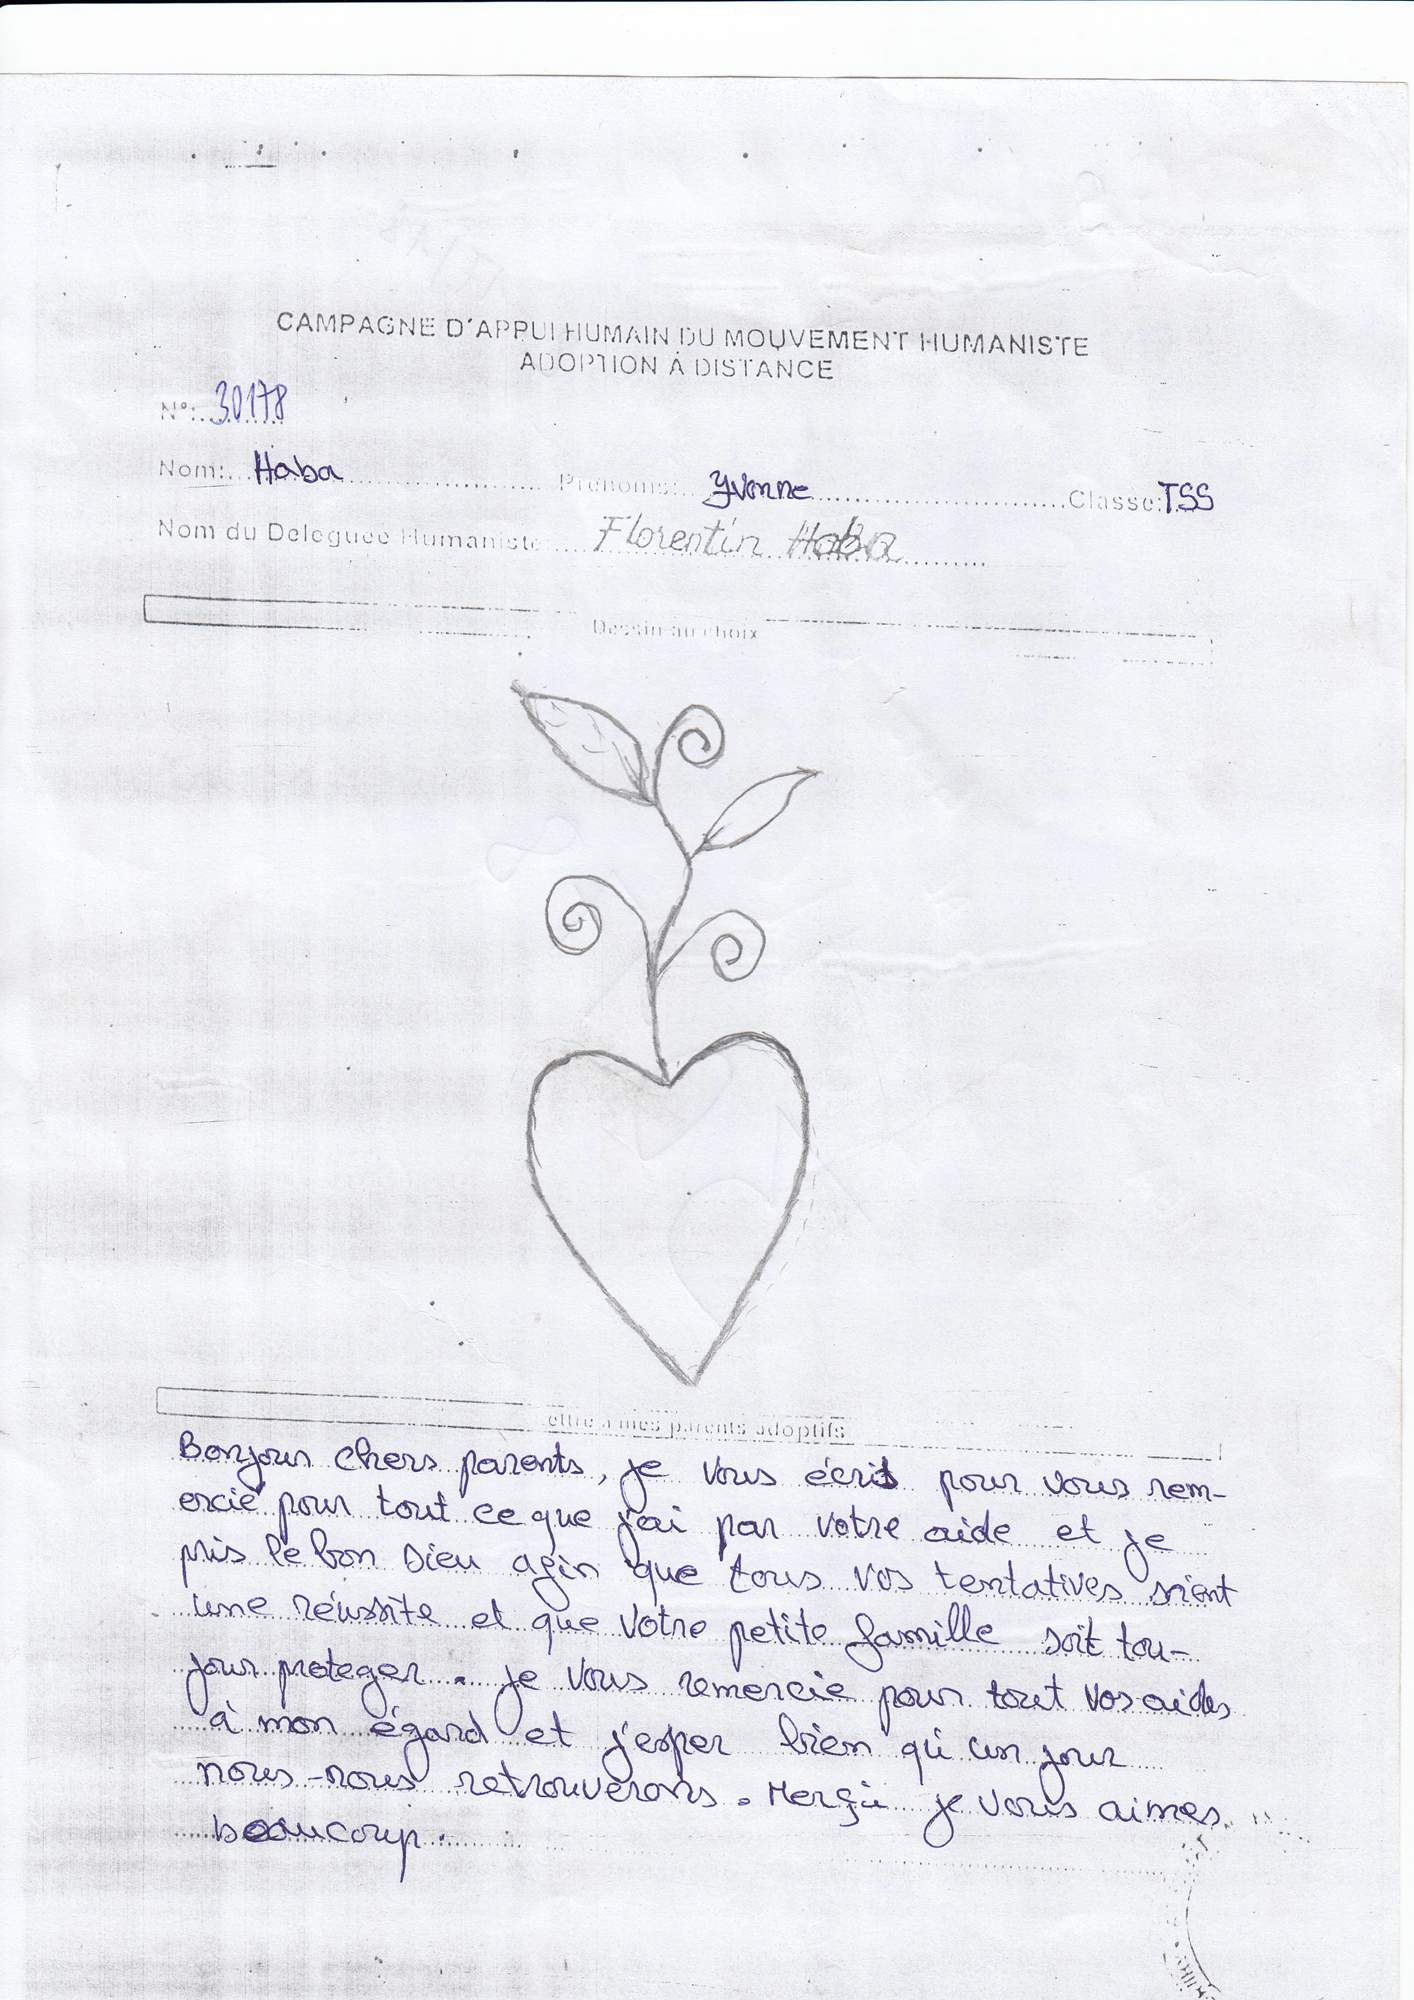 CAMPAGNE D'APPUI HUMAIN DU MOUVEMENT HUMANISTE
ADOPTION À DISTANCE
N°: 30178
Nom: Haba Prénoms: Yvonne Classe: TSS
Nom du Deleguée Humaniste Florentin Haba
Dessin au choix
ettre a mes parents adoptifs
Bonjour chers parents, je vous écris pour vous rem-
ercie pour tout ce que j'ai par votre aide et je
pris le bon Dieu afin que tous vos tentatives soient
une réussite et que votre petite famille soit tou-
jour proteger. je vous remercie pour tout vos aides
à mon égard et j'esper bien qu'un jour
nous-nous retrouverons. Merçi je vous aimes
beaucoup.